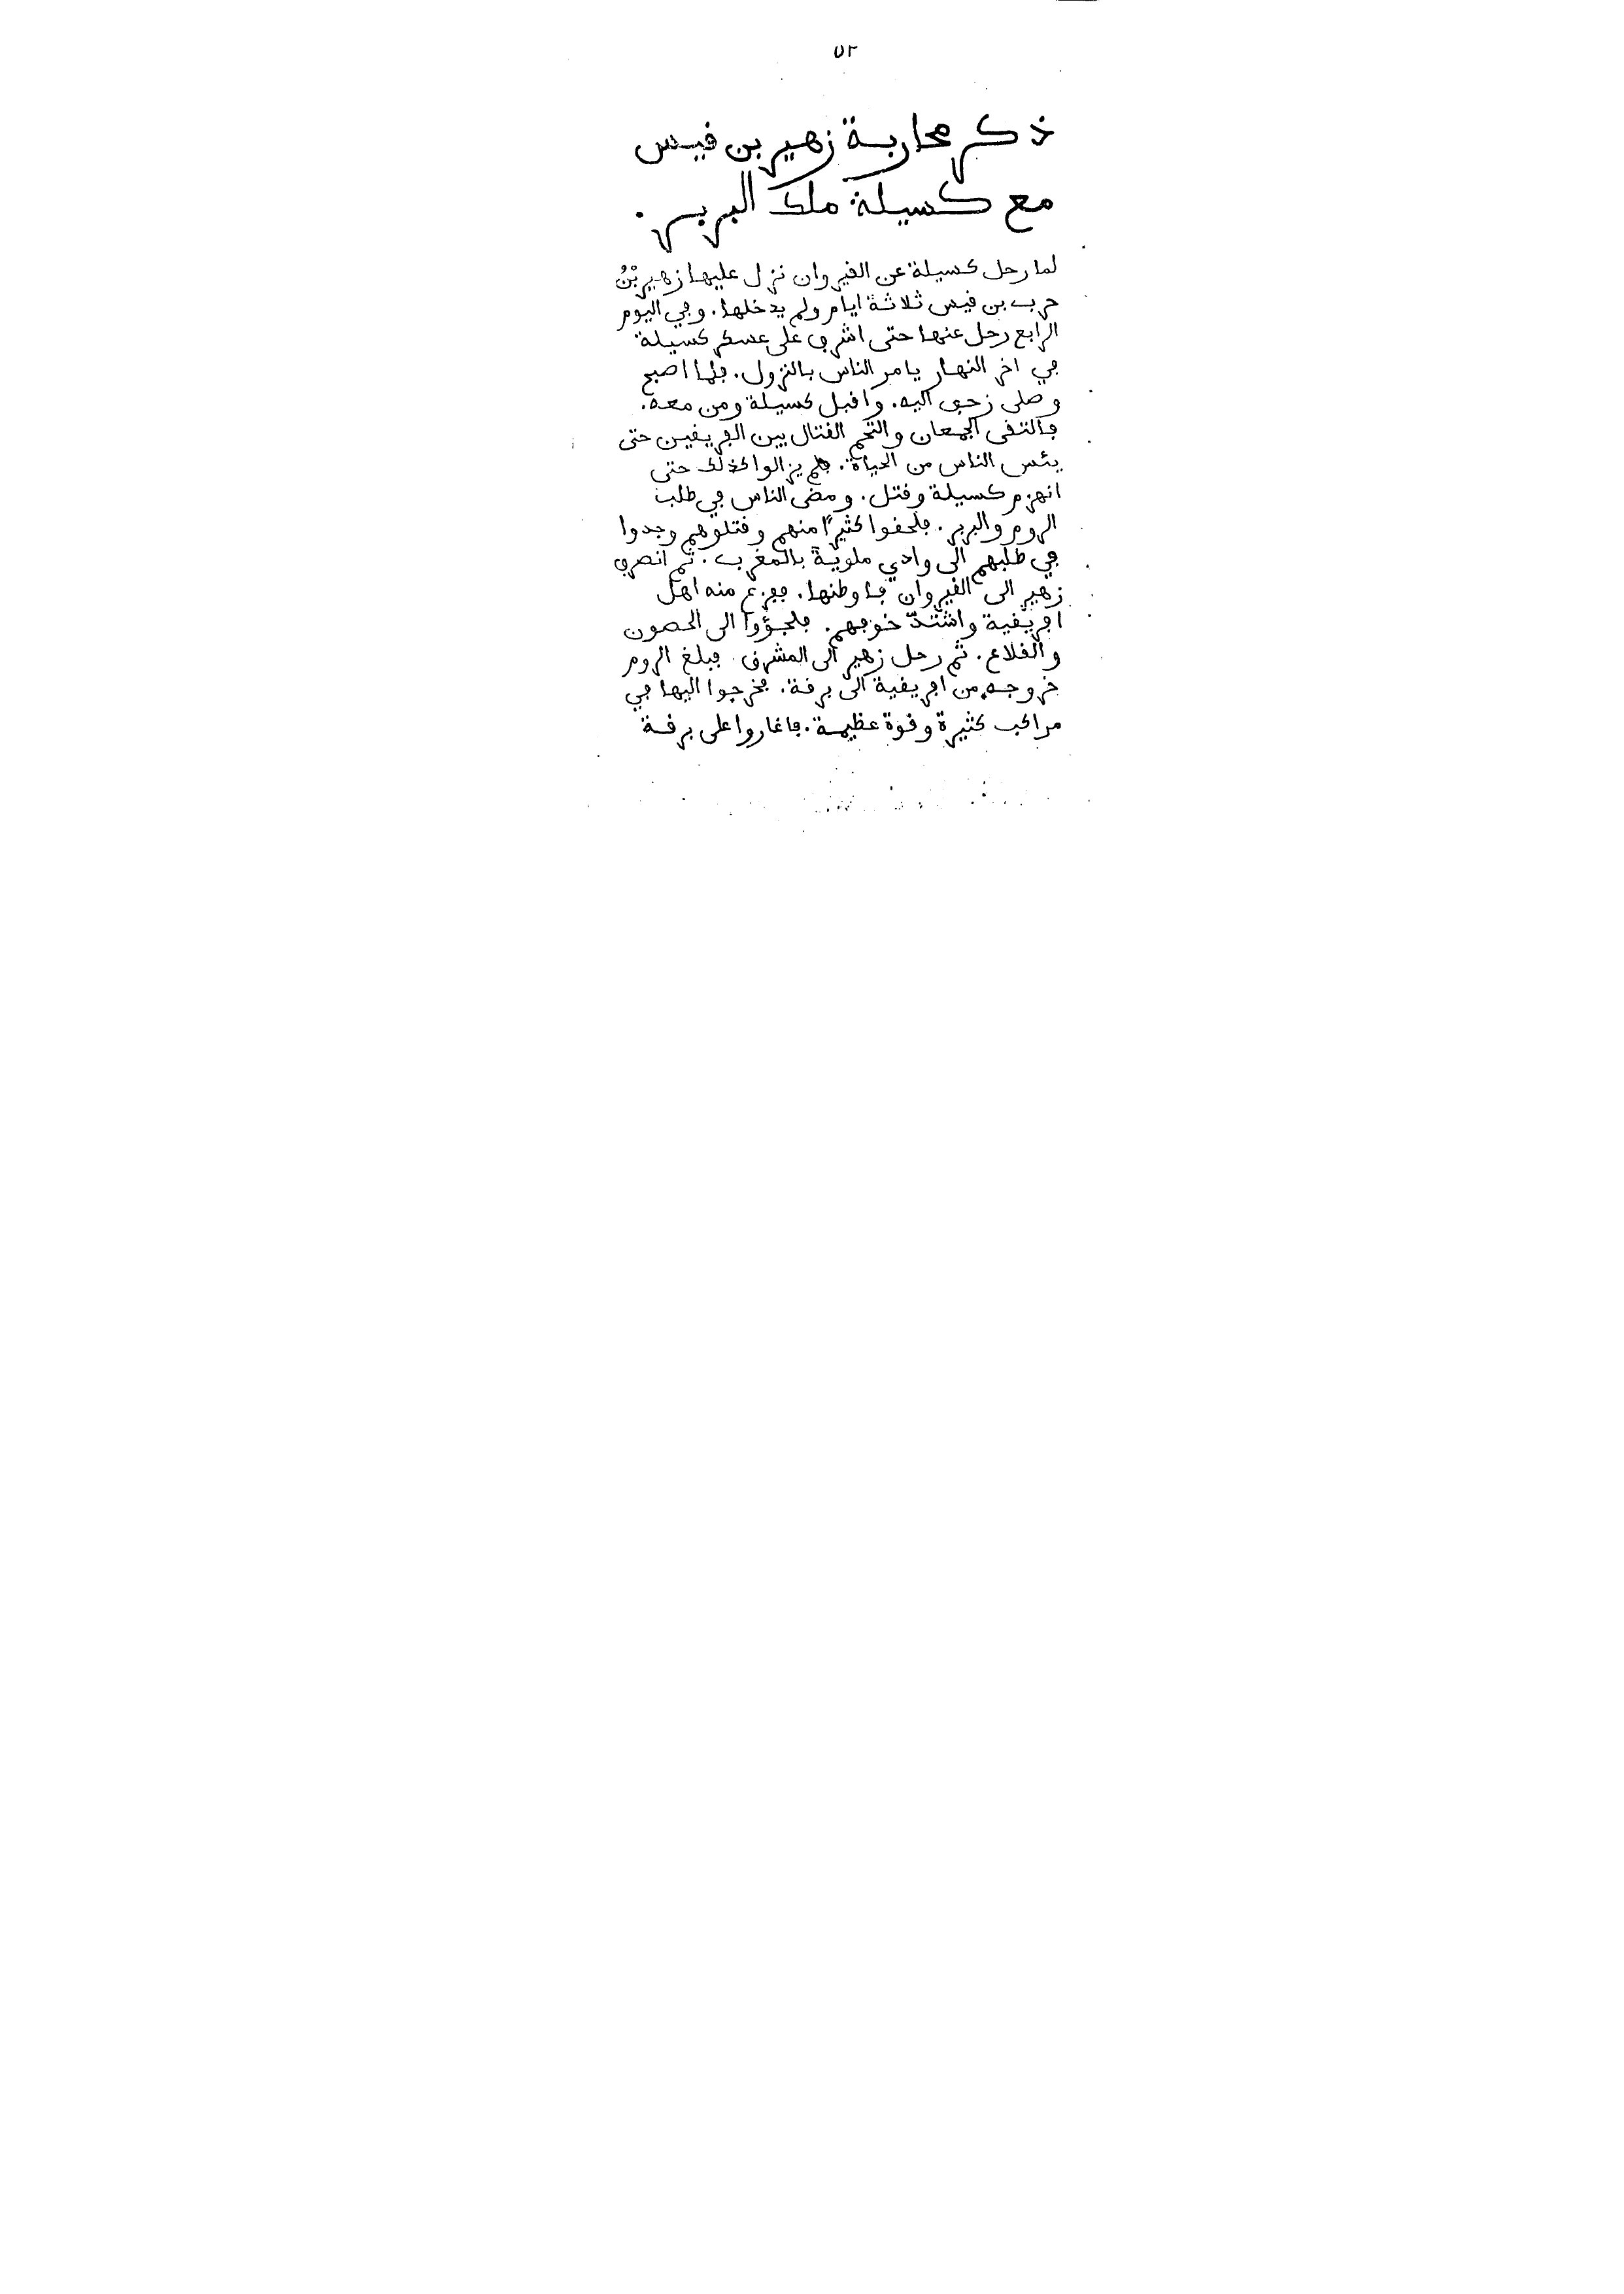 ٥٢
ذكر محاربة زهير بن قيس
مع كسيلة ملك البربر.
لما رحل كسيلة عن القيروان نزل عليها زهير بْنُ
حرب بن قيس ثلاثة ايام ولم يدخلها. وفي اليوم
الرابع رحل عنها حتى اشرف على عسكر كسيلة
في اخر النهار يامر الناس بالنزول. فلما اصبح
وصلى زحف اليه. واقبل كسيلة ومن معه.
فالتقى الجمعان والتحم القتال بين الفريقين حتى
يئس الناس من الحياة. فلم يزالوا كذلك حتى
انهزم كسيلة وقتل. ومضى الناس في طلب
الروم والبربر. فلحقوا كثيرًا منهم وقتلوهم وجدوا
في طلبهم الى وادي ملوية بالمغرب. ثم انصرف
زهير الى القيروان فاوطنها. ففزع منه اهل
افريقية واشتدّ خوفهم. فلجؤوا الى الحصون
والقلاع. ثم رحل زهير الى المشرق. فبلغ الروم
خروجه من افريقية الى برقة. فخرجوا اليها في
مراكب كثيرة وقوة عظيمة. فاغاروا على برقة